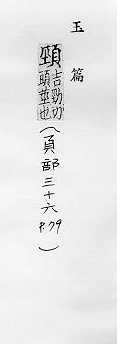 玉篇
頸吉勁切頭莖也(頁部三十六 P.79)